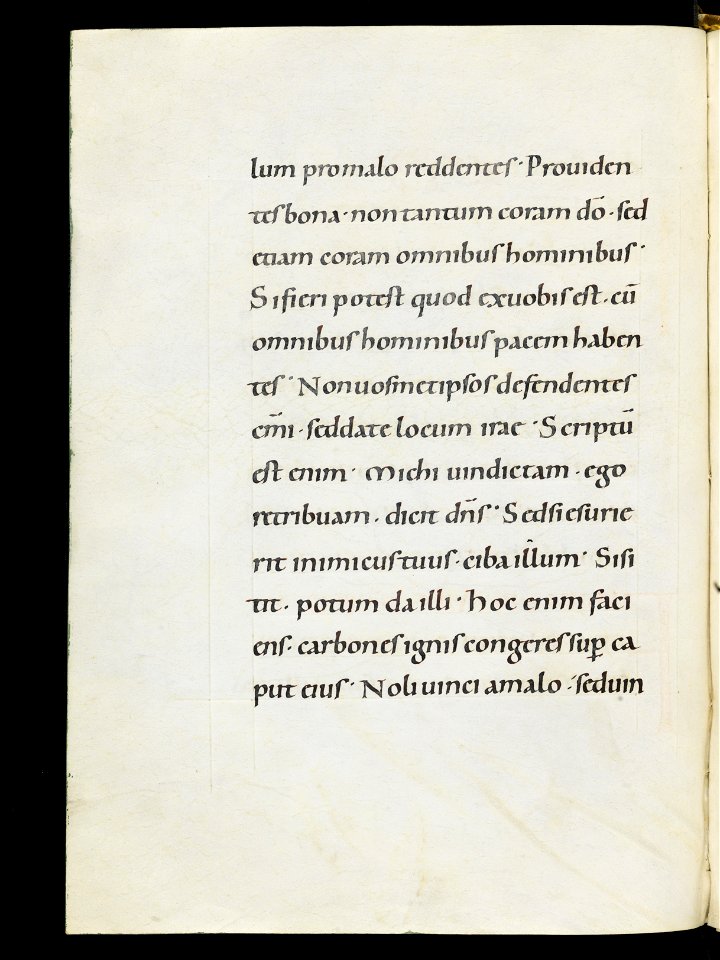 lum promalo reddentes· Prouiden
tes bona· non tantum coram dō· sed
etiam coram omnibus hominibus·
Si fieri potest quod exuobis est· cū
omnibus hominibus pacem haben
tes· Nonuosmetipsos defendentes
cm̄i· seddate locum irae· Scriptū
est enim· Michi uindictam· ego
retribuam· dicit dn̄s· Sedsi esurie
rit inimicus tuus· ciba illum· Sisi
tit· potum da illi· hoc enim faci
ens· carbones ignis congeres sup̲ ca
put eius· Noli uinci amalo· seduin